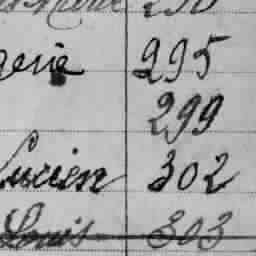 295
299
Lucien 302
Louis 303